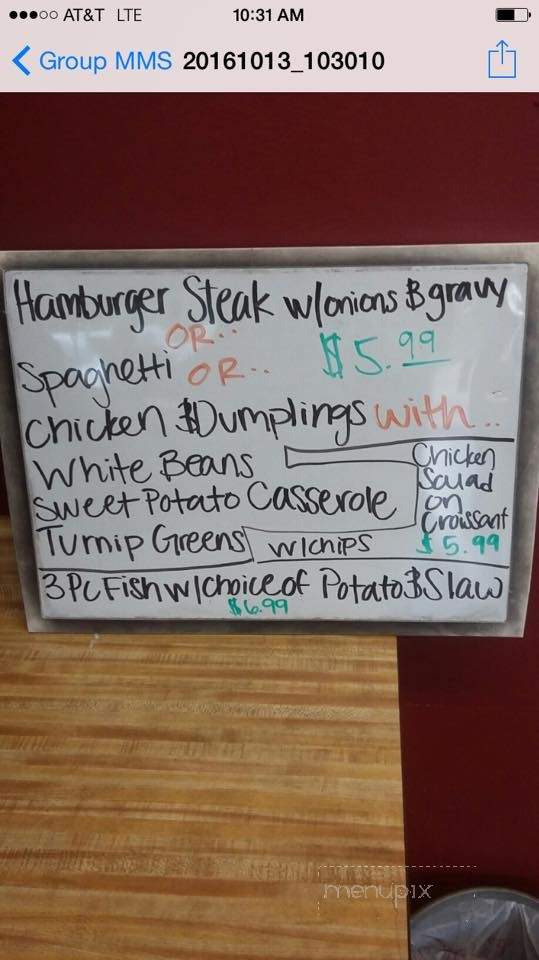 AT&T LTE 10:31 AM
Group MMS 20161013_103010
Hamburger Steak w/onions & gravy
OR..
Spaghetti OR.. $5.99
Chicken & Dumplings with..
White Beans
Sweet Potato Casserole
Turnip Greens
Chicken
Salad
on
Croissant
w/chips $5.99
3 PC Fish w/choice of Potato & Slaw
$6.99
menupix